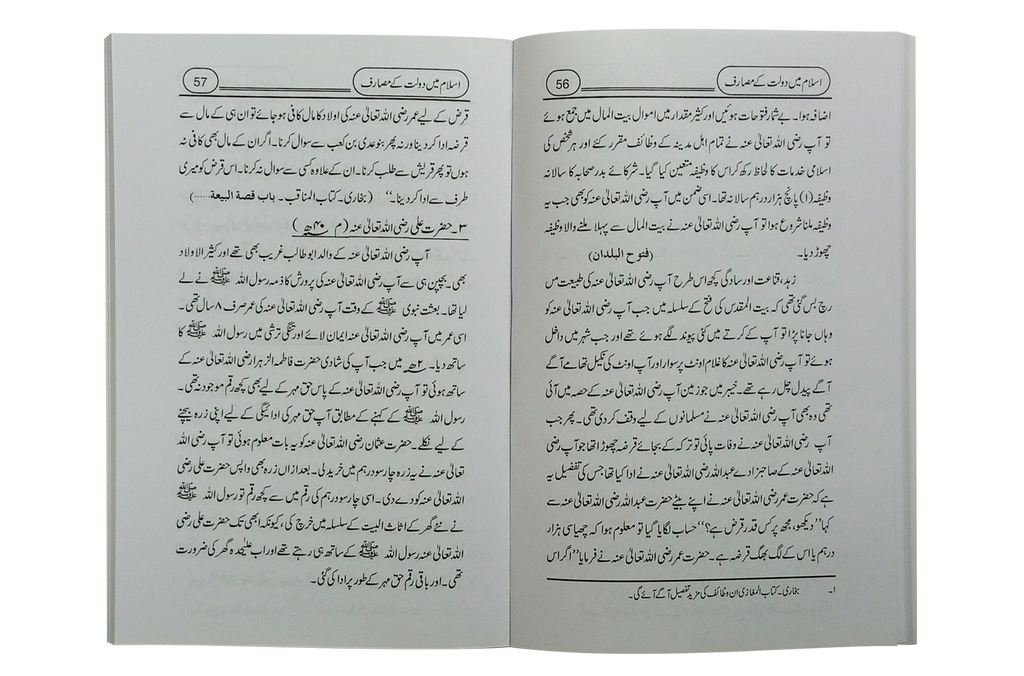 اسلام میں دولت کے مصارف
56
اضافہ ہوا۔ بے شمار فتوحات ہوئیں اور کثیر مقدار میں اموال بیت المال میں جمع ہوئے
تو آپ رضی اللہ تعالیٰ عنہ نے تمام اہل مدینہ کے وظائف مقرر کئے اور ہر شخص کی
اسلامی خدمات کا لحاظ رکھ کر اس کا وظیفہ متعین کیا گیا۔ شرکائے بدر صحابہ کا سالانہ
وظیفہ (۱) پانچ ہزار درہم سالانہ تھا۔ اسی ضمن میں آپ رضی اللہ تعالیٰ عنہ کو بھی جب یہ
وظیفہ ملنا شروع ہوا تو آپ رضی اللہ تعالیٰ عنہ نے بیت المال سے پہلا ملنے والا وظیفہ
چھوڑ دیا۔ (فتوح البلدان)
زہد، قناعت اور سادگی کچھ اس طرح آپ رضی اللہ تعالیٰ عنہ کی طبیعت من
رچ بس گئی تھی کہ بیت المقدس کی فتح کے سلسلہ میں جب آپ رضی اللہ تعالیٰ عنہ کو
وہاں جانا پڑا تو آپ کے کرتے میں کئی پیوند لگے ہوئے تھے اور جب شہر میں داخل
ہوئے تو آپ رضی اللہ تعالیٰ عنہ کا غلام اونٹ پر سوار اور آپ اونٹ کی نکیل تھامے آگے
آگے پیدل چل رہے تھے۔ خیبر میں جو زمین آپ رضی اللہ تعالیٰ عنہ کے حصہ میں آئی
تھی وہ بھی آپ رضی اللہ تعالیٰ عنہ نے مسلمانوں کے لیے وقف کر دی تھی۔ پھر جب
آپ رضی اللہ تعالیٰ عنہ نے وفات پائی تو ترکہ کے بجائے قرضہ چھوڑا تھا جو آپ رضی
اللہ تعالیٰ عنہ کے صاحبزادے عبداللہ رضی اللہ تعالیٰ عنہ نے ادا کیا تھا جس کی تفصیل یہ
ہے کہ حضرت عمر رضی اللہ تعالیٰ عنہ نے اپنے بیٹے حضرت عبداللہ رضی اللہ تعالیٰ عنہ سے
کہا ’’دیکھو، مجھ پر کس قدر قرض ہے؟‘‘ حساب لگایا گیا تو معلوم ہوا کہ چھیاسی ہزار
درہم یا اس کے لگ بھگ قرضہ ہے۔ حضرت عمر رضی اللہ تعالیٰ عنہ نے فرمایا ’’اگر اس
۱۔ بخاری۔ کتاب المغازی ان وظائف کی مزید تفصیل آگے آئے گی۔
اسلام میں دولت کے مصارف
57
قرض کے لیے عمر رضی اللہ تعالیٰ عنہ کی اولاد کا مال کافی ہو جائے تو ان ہی کے مال سے
قرضہ ادا کر دینا ورنہ پھر بنو عدی بن کعب سے سوال کرنا۔ اگر ان کے مال بھی کافی نہ
ہوں تو پھر قریش سے طلب کرنا۔ ان کے علاوہ کسی سے سوال نہ کرنا۔ اس قرض کو میری
طرف سے ادا کر دینا۔‘‘ (بخاری۔ کتاب المناقب۔ باب قصة البیعة......)
۳۔ حضرت علی رضی اللہ تعالیٰ عنہ (م ۴۰ھ)
آپ رضی اللہ تعالیٰ عنہ کے والد ابو طالب غریب بھی تھے اور کثیر الاولاد
بھی۔ بچپن ہی سے آپ رضی اللہ تعالیٰ عنہ کی پرورش کا ذمہ رسول اللہ ﷺ نے لے
لیا تھا۔ بعثت نبوی ﷺ کے وقت آپ رضی اللہ تعالیٰ عنہ کی عمر صرف ۸ سال تھی۔
اسی عمر میں آپ رضی اللہ تعالیٰ عنہ ایمان لائے اور تنگی ترشی میں رسول اللہ ﷺ کا
ساتھ دیا۔ ۲ھ میں جب آپ کی شادی حضرت فاطمہ الزہرا رضی اللہ تعالیٰ عنہ کے
ساتھ ہوئی تو آپ رضی اللہ تعالیٰ عنہ کے پاس حق مہر کے لیے بھی کچھ رقم موجود نہ تھی۔
رسول اللہ ﷺ کے کہنے کے مطابق آپ حق مہر کی ادائیگی کے لیے اپنی زرہ بیچنے
کے لیے نکلے۔ حضرت عثمان رضی اللہ تعالیٰ عنہ کو یہ بات معلوم ہوئی تو آپ رضی اللہ
تعالیٰ عنہ نے یہ زرہ چار سو درہم میں خرید لی۔ بعد ازاں زرہ بھی واپس حضرت علی رضی
اللہ تعالیٰ عنہ کو دے دی۔ اسی چار سو درہم کی رقم میں سے کچھ رقم تو رسول اللہ ﷺ
نے نئے گھر کے اثاث البیت کے سلسلہ میں خرچ کی، کیونکہ ابھی تک حضرت علی رضی
اللہ تعالیٰ عنہ رسول اللہ ﷺ کے ساتھ ہی رہتے تھے اور اب علیٰحدہ گھر کی ضرورت
تھی۔ اور باقی رقم حق مہر کے طور پر ادا کی گئی۔